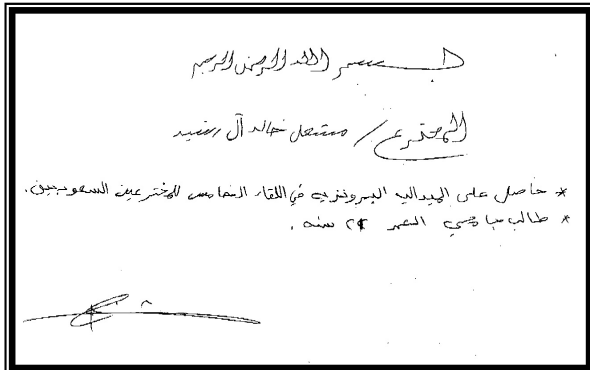 بسم الله الرحمن الرحيم
المخترع / مشعل خالد آل رشيد
* حاصل على الميداليه البرونزيه في اللقاء الخامس للمخترعين السعوديين.
* طالب جامعي العمر ٢٤ سنه .